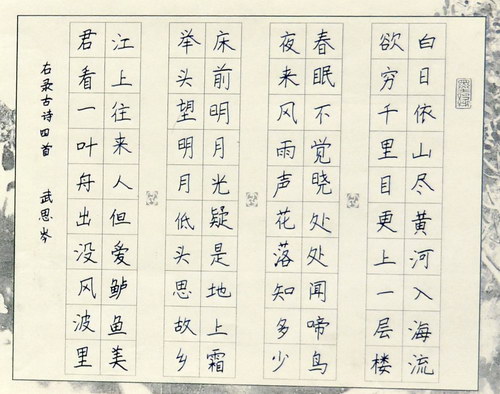 白日依山尽黄河入海流
欲穷千里目更上一层楼
春眠不觉晓处处闻啼鸟
夜来风雨声花落知多少
床前明月光疑是地上霜
举头望明月低头思故乡
江上往来人但爱鲈鱼美
君看一叶舟出没风波里
右录古诗四首 武思岑